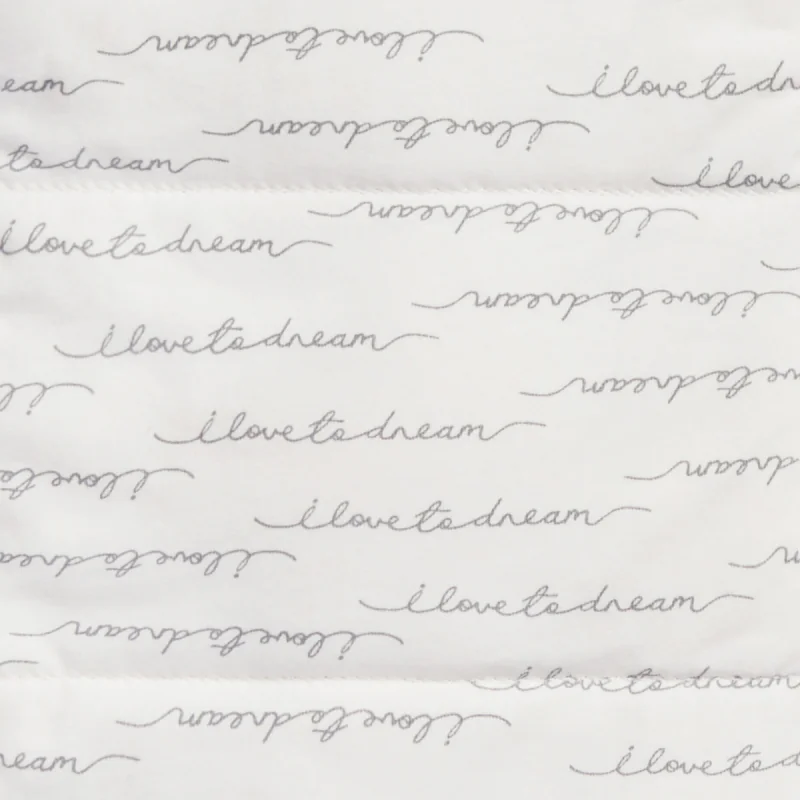 i love to dream
eam
i love to dr
i love to dream
to dream
i love
i love to dream
i love to dream
i love to dream
i love to dream
i love to dream
i l
i love to dream
dream
i love to
i love to dream
i love to dream
i love to dream
i love to dream
i love to dream
i love to dream
ream
i love to d